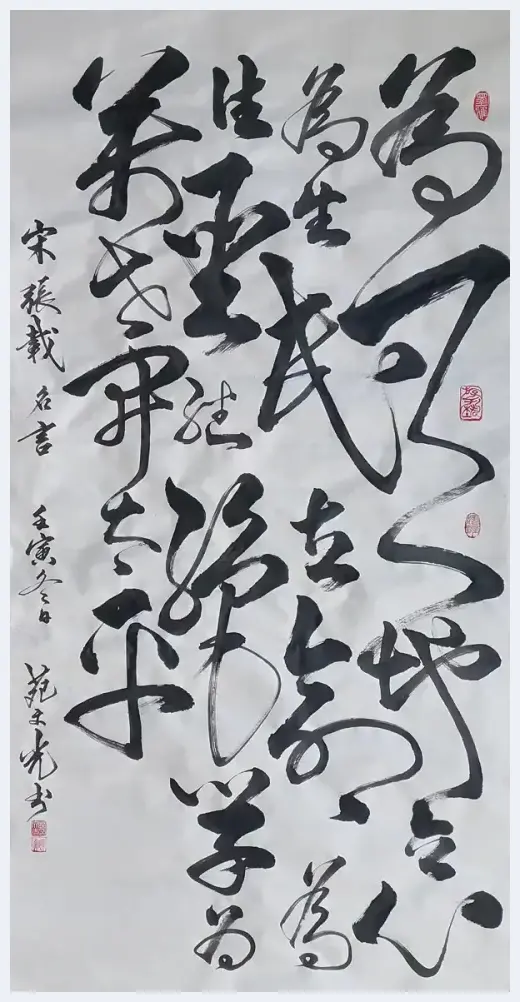 為天地立心
為生民立命為
往聖继絶学為
萬世開太平
宋張載名言 壬寅冬日 苑文光书